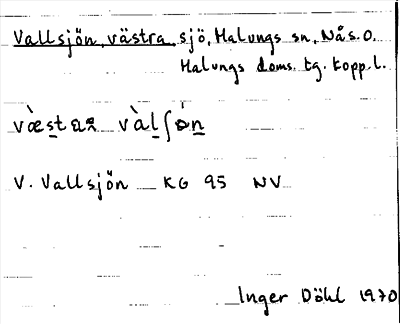 Vallsjön, västra, sjö, Malungs sn, Nås. o.
Malungs doms. tg. Kopp. l.
V. Vallsjön KG 95 NV
Inger Döhl 1970